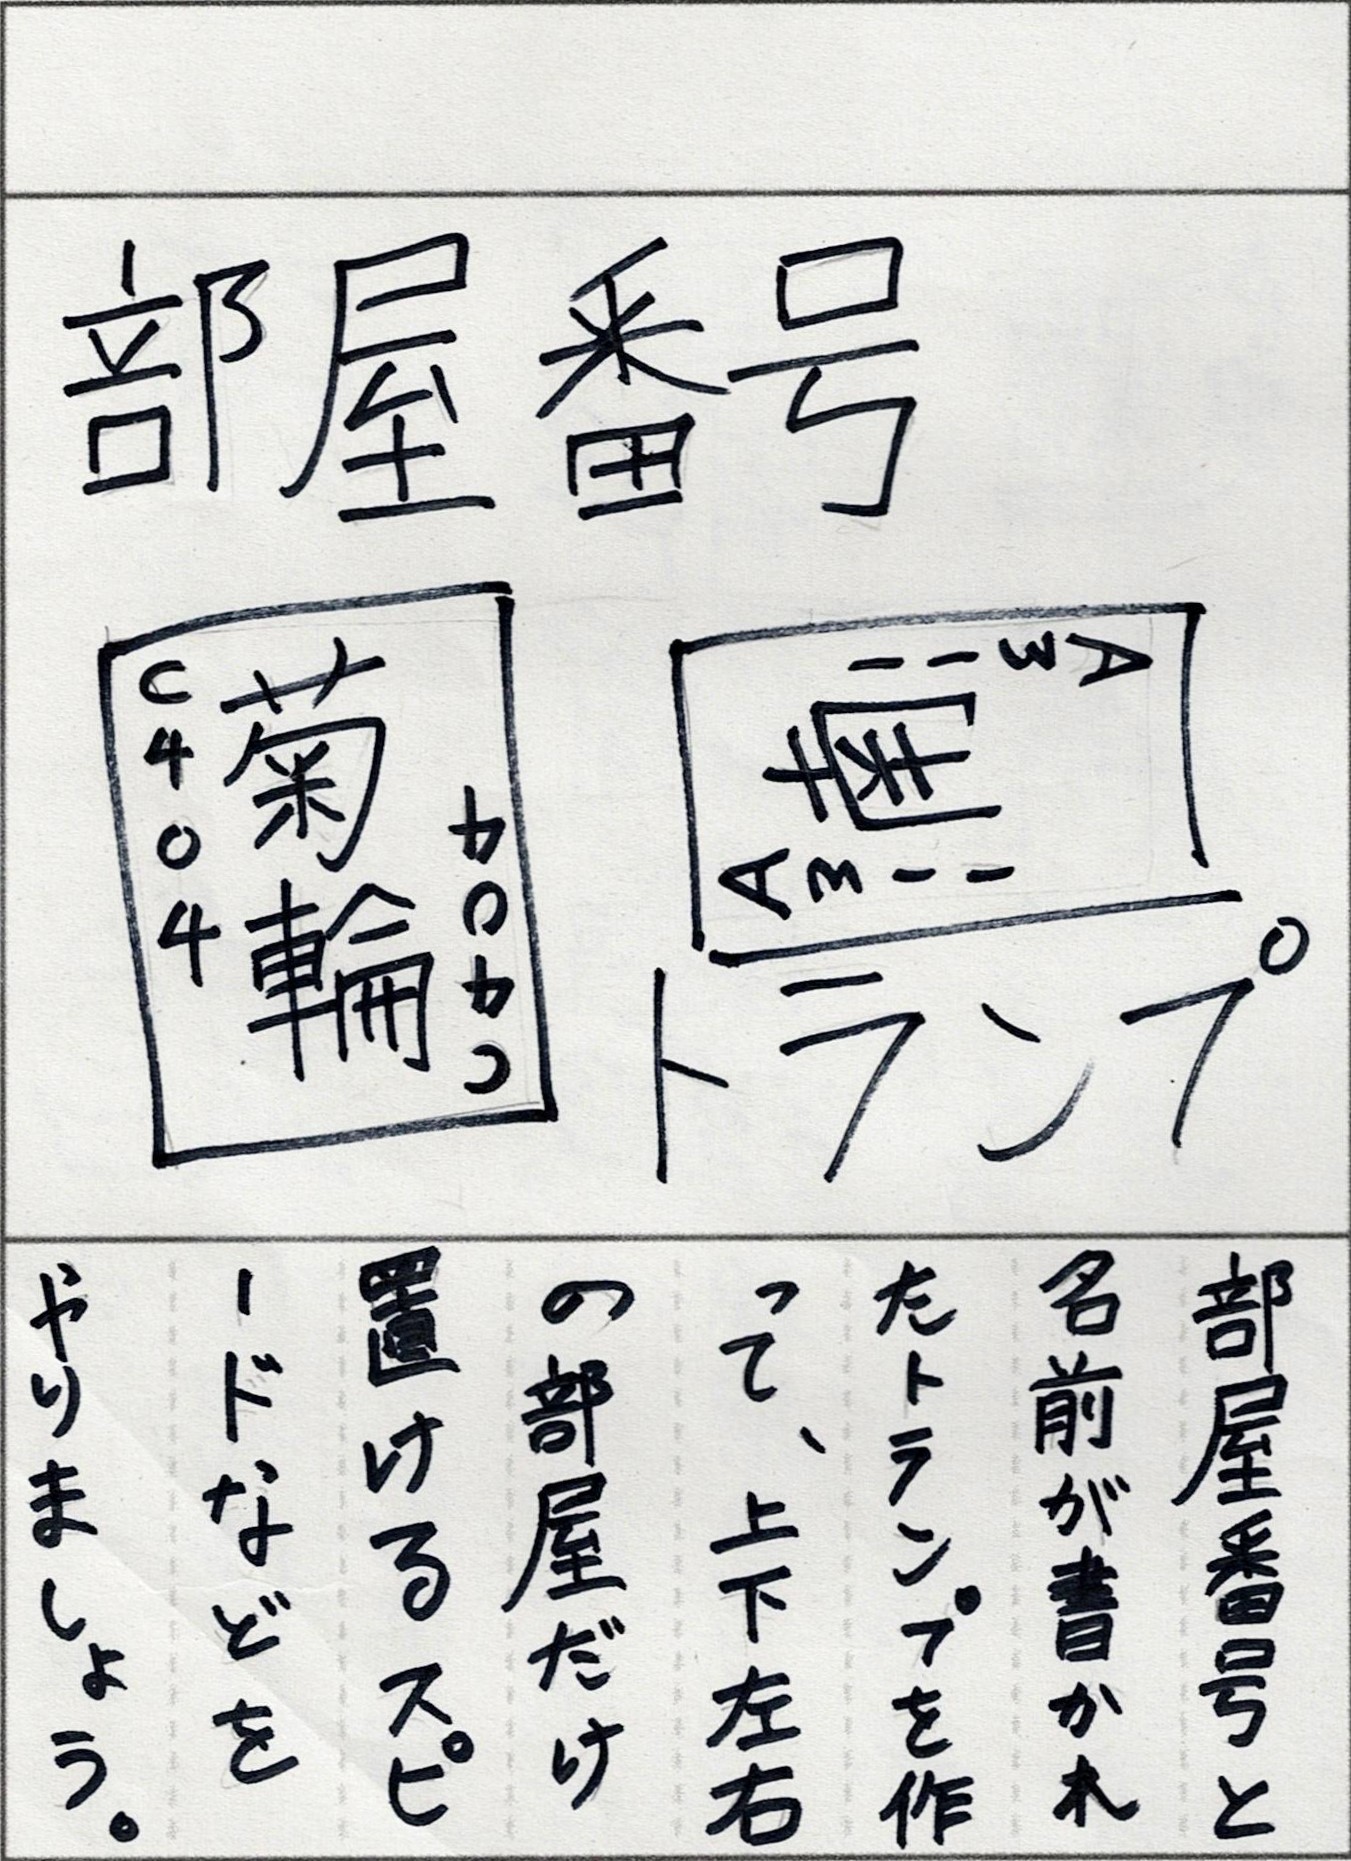 部屋番号
C404
菊輪
C404
A311
南
A311
トランプ
部屋番号と
名前が書かれ
たトランプを作
って、上下左右
の部屋だけ
置けるスピ
ードなどを
やりましょう。